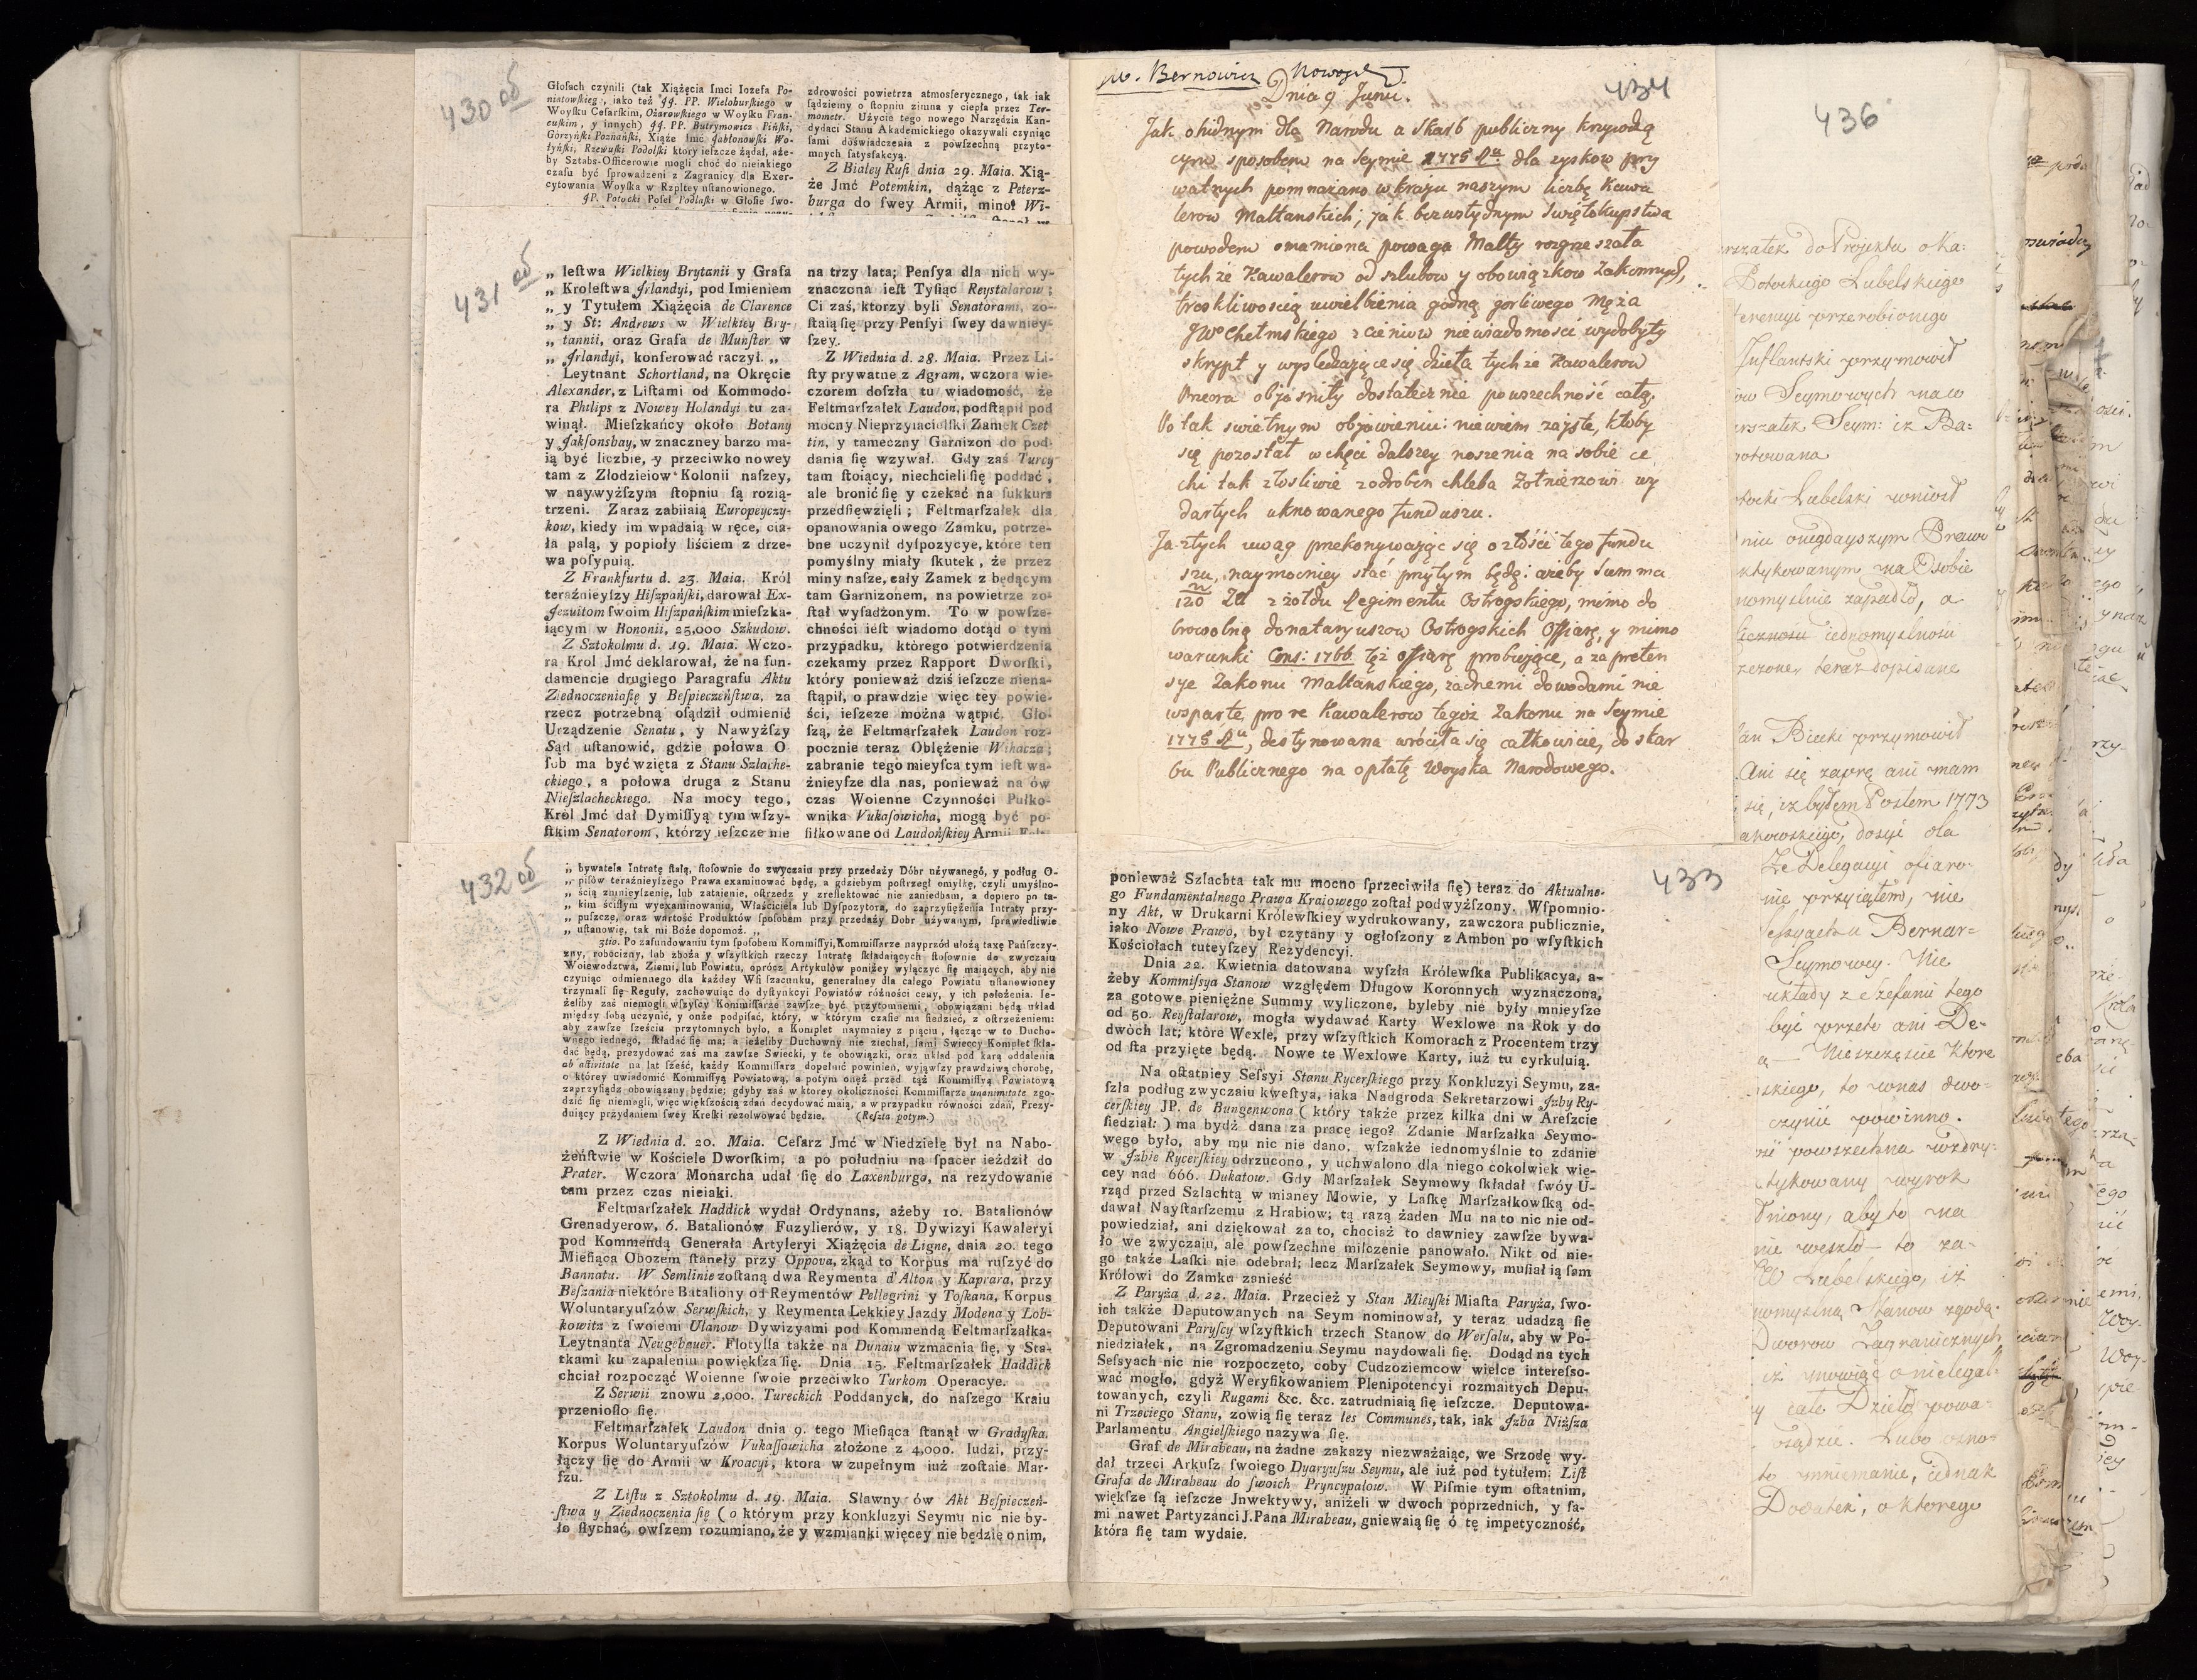 430 об
Głoſach czynili (tak Xiążęcia Imci Iozefa Po-
niatowſkieg, iako też JJ. PP. Wieloburſkiego w
Woyſku Ceſarſkim, Ożarowſkiego w Woyſku Fran-
cuſkim, y innych) JJ. PP. Butrymowicz Pińſki,
Gorzyńſki Poznańſki, Xiąże Imć Jabłonowſki Wo-
łyńſki, Rzewuſki Podolſki ktory ieſzcze żądał, aże-
by Sztabs-Officerowie mogli choć do nieiakiego
czaſu być ſprowadzeni z Zagranicy dla Exer-
cytowania Woyſka w Rzpltey uſtanowionego.
JP. Potocki Poſeł Podlaſki w Głoſie ſwo-
zdrowości powietrza atmosferycznego, tak iak
ſądziemy o ſtopniu zimna y ciepła przez Ter-
mometr. Użycie tego nowego Narzędzia Kan-
dydaci Stanu Akademickiego okazywali czyniąc
ſami doświadczenia z powſzechną przyto-
mnych ſatysfakcyą.
Z Białey Ruſi dnia 29. Maia. Xią-
że Jmć Potemkin, dążąc z Peterz-
burga do ſwey Armii, minoł Wi-
431 об
„ leſtwa Wielkiey Brytanii y Graſa
„ Kroleſtwa Jrlandyi, pod Imieniem
„ y Tytułem Xiążęcia de Clarence
„ y St: Andrews w Wielkiey Bry-
„ tannii, oraz Graſa de Munſter w
„ Jrlandyi, konferować raczył. „
Leytnant Schortland, na Okręcie
Alexander, z Liſtami od Kommodo-
ra Philips z Nowey Holandyi tu za-
winął. Mieſzkańcy około Botany
y Jakſonsbay, w znaczney barzo ma-
ią być liczbie, y przeciwko nowey
tam z Złodzieiow Kolonii naſzey,
w naywyższym ſtopniu ſą rozią-
trzeni. Zaraz zabiiaią Europeyczy-
kow, kiedy im wpadaią w ręce, cia-
ła palą, y popioły liściem z drze-
wa poſypuią.
Z Frankfurtu d. 23. Maia. Król
teraźnieyſzy Hiſzpańſki, darował Ex-
Jezuitom ſwoim Hiſzpańſkim mieſzka-
iącym w Bononii, 25,000 Szkudow.
Z Sztokolmu d. 19. Maia. Wczo-
ra Krol Jmć deklarował, że na fun-
damencie drugiego Paragrafu Aktu
Ziednoczeniaſię y Beſpieczeńſtwa, za
rzecz potrzebną oſądził odmienić
Urządzenie Senatu, y Naywyżſzy
Sąd uſtanowić, gdzie połowa O
ſob ma być wzięta z Stanu Szlache-
ckiego, a połowa druga z Stanu
Nieſzlacheckiego. Na mocy tego,
Krol Jmć dał Dymiſſyą tym wſzy-
ſtkim Senatorom, którzy ieſzcze nie
na trzy lata; Penſya dla nich wy-
znaczona ieſt Tyſiąc Reyſtalarow;
Ci zaś, ktorzy byli Senatorami, zo-
ſtaią ſię przy Penſyi ſwey dawniey-
ſzey.
Z Wiednia d. 28. Maia. Przez Li-
ſty prywatne z Agram, wczora wie-
czorem doſzła tu wiadomość, że
Feltmarſzałek Laudon, podſtąpił pod
mocny Nieprzyiacielſki Zamek Czet
tin, y tameczny Garnizon do pod-
dania ſię wzywał. Gdy zaś Turcy
tam ſtoiący, niechcieli ſię poddać,
ale bronić ſię y czekać na ſukkurs
przedſięwzięli; Feltmarſzałek dla
opanowania owego Zamku, potrze-
bne uczynił dyſpozycye, które ten
pomyślny miały ſkutek, że przez
miny naſze, cały Zamek z będącym
tam Garnizonem, na powietrze zo-
ſtał wyſadzonym. To w powſze-
chności ieſt wiadomo dotąd o tym
przypadku, którego potwierdzenia
czekamy przez Rapport Dworſki,
który ponieważ dziś ieſzcze niena-
ſtąpił, o prawdzie więc tey powie-
ści, ieſzcze można wątpić. Gło-
ſzą, że Feltmarſzałek Laudon roz-
pocznie teraz Oblężenie Wihacza;
zabranie tego mieyſca tym ieſt wa-
żnieyſze dla nas, ponieważ na ów
czas Woienne Czynności Pułko-
wnika Vukaſowicha, mogą być po-
ſiłkowane od Laudońſkiey Armii
432 об
„ bywatela Intratę ſtałą, ſtoſownie do zwyczaiu przy przedaży Dóbr używanego, y podług O-
„ piſów teraźnieyſzego Prawa examinować będę, a gdziebym poſtrzegł omyłkę, czyli umyślno-
„ ścią zmnieyſzenie, lub zataienie, oſtrzedz y zreflektować nie zaniedbam, a dopiero po ta-
„ kim ściſłym wyexaminowaniu, Właściciela lub Dyſpozytora, do zaprzyſiężenia Intraty przy-
„ puſzczę, oraz wartość Produktów ſpoſobem przy przedaży Dobr używanym, ſprawiedliwie
„ uſtanowię, tak mi Boże dopomoż. „
3tio. Po zafundowaniu tym ſpoſobem Kommiſſyi, Kommiſſarze nayprzód ułożą taxę Pańſzczy-
zny, robocizny, lub zboża y wſzyſtkich rzeczy Intratę ſkładaiących ſtoſownie do zwyczaiu
Woiewodztwa, Ziemi, lub Powiatu, oprócz Artykułów poniżey wyłączyc ſię maiących, aby nie
czyniąc odmiennego dla każdey Wſi ſzacunku, generalney dla całego Powiatu uſtanowioney
trzymali ſię Reguły, zachowuiąc do dyſtynkcyi Powiatów różności ceny, y ich położenia. Ie-
żeliby zaś niemogli wſzyſcy Kommiſſarze zawſze być przytomnemi, obowiązani będą układ
między ſobą uczynić, y onże podpiſać, który, w którym czaſie ma ſiedzieć, z oſtrzeżeniem:
aby zawſze ſześciu przytomnych było, a Komplet naymniey z pięciu, łącząc w to Ducho-
wnego iednego, ſkładać ſię ma; a ieżeliby Duchowny nie ziechał, ſami Swieccy Komplet ſkła-
dać będą, prezydować zaś ma zawſze Swiecki, y te obowiązki, oraz układ pod karą oddalenia
ab activitate na lat ſześć, każdy Kommiſſarz dopełnić powinien, wyiąwſzy prawdziwą chorobę,
o którey uwiadomić Kommiſſyą Powiatową, a potym onęż przed tąż Kommiſſyą Powiatową
zaprzyſiądz obowiązany będzie; gdyby zaś w ktorey okoliczności Kommiſſarze unanimitate zgo-
dzić ſię niemogli, więc więkſzością zdań decydować maią, a w przypadku równości zdań, Prezy-
duiący przydaniem ſwey Kreſki rezolwować będzie. (Reſzta potym.)
Z Wiednia d. 20. Maia. Ceſarz Jmć w Niedzielę był na Nabo-
żeńſtwie w Kościele Dworſkim, a po południu na ſpacer ieździł do
Prater. Wczora Monarcha udał ſię do Laxenburga, na rezydowanie
tam przez czas nieiaki.
Feltmarſzałek Haddick wydał Ordynans, ażeby 10. Batalionów
Grenadyerow, 6. Batalionów Fuzylierów, y 18. Dywizyi Kawaleryi
pod Kommendą Generała Artyleryi Xiążęcia de Ligne, dnia 20. tego
Mieſiąca Obozem ſtaneły przy Oppova, zkąd to Korpus ma ruſzyć do
Bannatu. W Semlinie zoſtaną dwa Reymenta d'Alton y Kaprara, przy
Beſzania niektóre Bataliony od Reymentów Pellegrini y Toſkana, Korpus
Woluntaryuſzów Serwſkich, y Reymenta Lekkiey Jazdy Modena y Lob-
kowitz z ſwoiemi Ulanow Dywizyami pod Kommendą Feltmarſzałka-
Leytnanta Neugebauer. Flotylla także na Dunaiu wzmacnia ſię, y Sta-
tkami ku zapaleniu powiękſza ſię. Dnia 15. Feltmarſzałek Haddick
chciał rozpocząć Woienne ſwoie przeciwko Turkom Operacye.
Z Serwii znowu 2,000. Tureckich Poddanych, do naſzego Kraiu
przenioſło ſię.
Feltmarſzałek Laudon dnia 9. tego Mieſiąca ſtanął w Gradyſka.
Korpus Woluntaryuſzów Vukaſſowicha złożone z 4,000. ludzi, przy-
łączy ſię do Armii w Kroacyi, ktora w zupełnym iuż zoſtaie Mar-
ſzu.
Z Liſtu z Sztokolmu d. 19. Maia. Sławny ów Akt Beſpieczeń-
ſtwa y Ziednoczenia ſię (o którym przy konkluzyi Seymu nic nie by-
ło ſłychać, owſzem rozumiano, że y wzmianki więcey nie będzie o nim,
434
JW. Bernowicz Nowogr
Dnia 9 Junii.
Jak ohidnym dla Narodu a Skarb publiczny krzywdzą
cym sposobem na Seymie 1775 Ru. dla zyskow pry
watnych pomnażano w kraju naszym liczbę Kawa
lerow Maltanskich; jak bezwstydnym Swiętokupstwa
powodem omamiona powaga Malty rozgrzeszała
tychże Kawalerow od szlubow y obowiązkow Zakonnych,
troskliwoscią uwielbienia godną gorliwego Męża
JWo Chełmskiego z cieniow niewiadomosci wydobyty
skrypt y wysledzające się dzieła tychże Kawalerow
Przeora objasniły dostatecznie powszechność całą.
Po tak swietnym objawieniu: niewiem zajste, ktoby
się pozostał w chęci dalszey noszenia na sobie ce
chi tak złosliwie z odrobin chleba Żołnierzowi wy
dartych uknowanego funduszu.
Ja z tych uwag przekonywając się o złości tego fundu
szu, naymocniey stać przytym będę: ażeby Summa
120 m Zł z żołdu Regimentu Ostrogskiego, mimo do
browolną donataryuszow Ostrogskich Offiarę, y mimo
warunki Cons: 1766 tęż offiarę probujące, a za preten
sye Zakonu Maltanskiego, żadnemi dowodami nie
wsparte, pro re Kawalerow tegoż Zakonu na Seymie
1775 Ru, destynowana wróciła się całkowicie, do skar
bu Publicznego na opłatę Woyska Narodowego.
433
ponieważ Szlachta tak mu mocno ſprzeciwiła ſię) teraz do Aktualne-
go Fundamentalnego Prawa Kraiowego zoſtał podwyżſzony. Wſpomnio-
ny Akt, w Drukarni Królewſkiey wydrukowany, zawczora publicznie,
iako Nowe Prawo, był czytany y ogłoſzony z Ambon po wſyſtkich
Kościołach tuteyſzey Rezydencyi.
Dnia 22. Kwietnia datowana wyſzła Królewſka Publikacya, a-
żeby Kommiſsya Stanow względem Długow Koronnych wyznaczona,
za gotowe pieniężne Summy wyliczone, byleby nie były mnieyſze
od 50. Reyſtalarow, mogła wydawać Karty Wexlowe na Rok y do
dwóch lat; które Wexle, przy wſzyſtkich Komorach z Procentem trzy
od ſta przyięte będą. Nowe te Wexlowe Karty, iuż tu cyrkuluią.
Na oſtatniey Seſsyi Stanu Rycerſkiego przy Konkluzyi Seymu, za-
ſzła podług zwyczaiu kweſtya, iaka Nadgroda Sekretarzowi Jzby Ry-
cerſkiey JP. de Bungenwona (który także przez kilka dni w Areſzcie
ſiedział:) ma bydź dana za pracę iego? Zdanie Marſzałka Seymo-
wego było, aby mu nic nie dano, wſzakże iednomyślnie to zdanie
w Jzbie Rycerſkiey odrzucono, y uchwalono dla niego cokolwiek wię-
cey nad 666. Dukatow. Gdy Marſzałek Seymowy ſkładał ſwóy U-
rząd przed Szlachtą w mianey Mowie, y Laſkę Marſzałkowſką od-
dawał Nayſtarſzemu z Hrabiow; tą razą żaden Mu na to nic nie od-
powiedział, ani dziękował za to, chociaż to dawniey zawſze bywa-
ło we zwyczaiu, ale powſzechne milczenie panowało. Nikt od nie-
go także Laſki nie odebrał; lecz Marſzałek Seymowy, muſiał ią ſam
Królowi do Zamku zanieść
Z Paryża d. 22. Maia. Przecież y Stan Mieyſki Miaſta Paryża, ſwo-
ich także Deputowanych na Seym nominował, y teraz udadzą ſię
Deputowani Paryſcy wſzyſtkich trzech Stanow do Werſalu, aby w Po-
niedziałek, na Zgromadzeniu Seymu naydowali ſię. Dodąd na tych
Seſsyach nic nie rozpoczęto, coby Cudzoziemcow wielce intereſso-
wać mogło, gdyż Weryfikowaniem Plenipotencyi rozmaitych Depu-
towanych, czyli Rugami &c. &c. zatrudniaią ſię ieſzcze. Deputowa-
ni Trzeciego Stanu, zowią ſię teraz les Communes, tak, iak Jzba Niżſza
Parlamentu Angielſkiego nazywa ſię.
Graf de Mirabeau, na żadne zakazy niezważaiąc, we Srzodę wy-
dał trzeci Arkuſz ſwoiego Dyaryuſzu Seymu, ale iuż pod tytułem: Liſt
Grafa de Mirabeau do ſwoich Pryncypalow. W Piſmie tym oſtatnim,
więkſze ſą ieſzcze Jnwektywy, aniżeli w dwoch poprzednich, y ſa-
mi nawet Partyzánci J. Pana Mirabeau, gniewaią ſię ó tę impetyczność,
która ſię tam wydaie.
436
rszałek do Projektu o Ka:
Potockiego Lubelskiego
przerobionego
Inflantski przymowił
ow Seymowych na w
rszałek Seym: iż Ba:
rotowana
tocki Lubelski wniosł
niu onegdayszym Prawo
ktykowanym na Osobie
nomyslnie zapadło, a
liczności iednomyslności
rzezone, teraz dopisane
łan Biecki przymowił
Ani się zaprę ani mam
się, iż byłem Posłem 1773
akowskiego, dosyć dla
Że Delegacyi ofiaro-
nie przyiąłem, nie
Bernar=
Seymowey. Nie
układy z czefunii tego
być przeto ani De-
ą — Nieszczęście ktore
skiego, to wnas dwo-
czynić powinno.
ni powszechna wzdry-
tykowany wyrok
dniony, aby to na
nie weszło — to za-
W Lubelskiego, iż
nomyslną Stanow zgodą.
Dworow Zagranicznych
iż mowiąc o nielegal-
y całe Dzieło powa-
osądzie. Lubo
to mniemanie, iednak
Dodatek, o ktorego